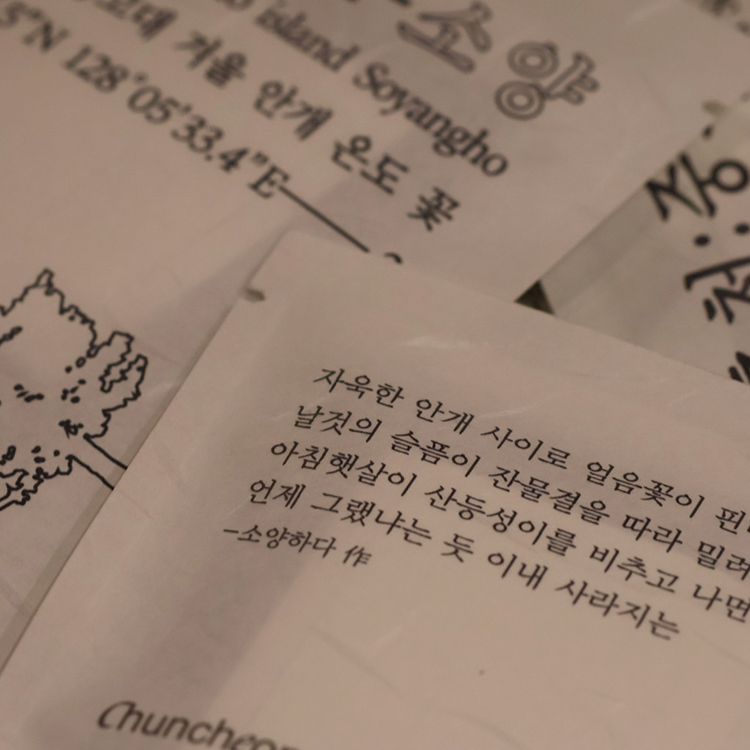 소양
island Soyangho
겨울 안개 온도 꽃
5"N 128°05'33.4"E
자욱한 안개 사이로 얼음꽃이
날것의 슬픔이 잔물결을 따라
아침햇살이 산등성이를 비추고 나면
언제 그랬냐는 듯 이내 사라지는
-소양하다 作
Chuncheon